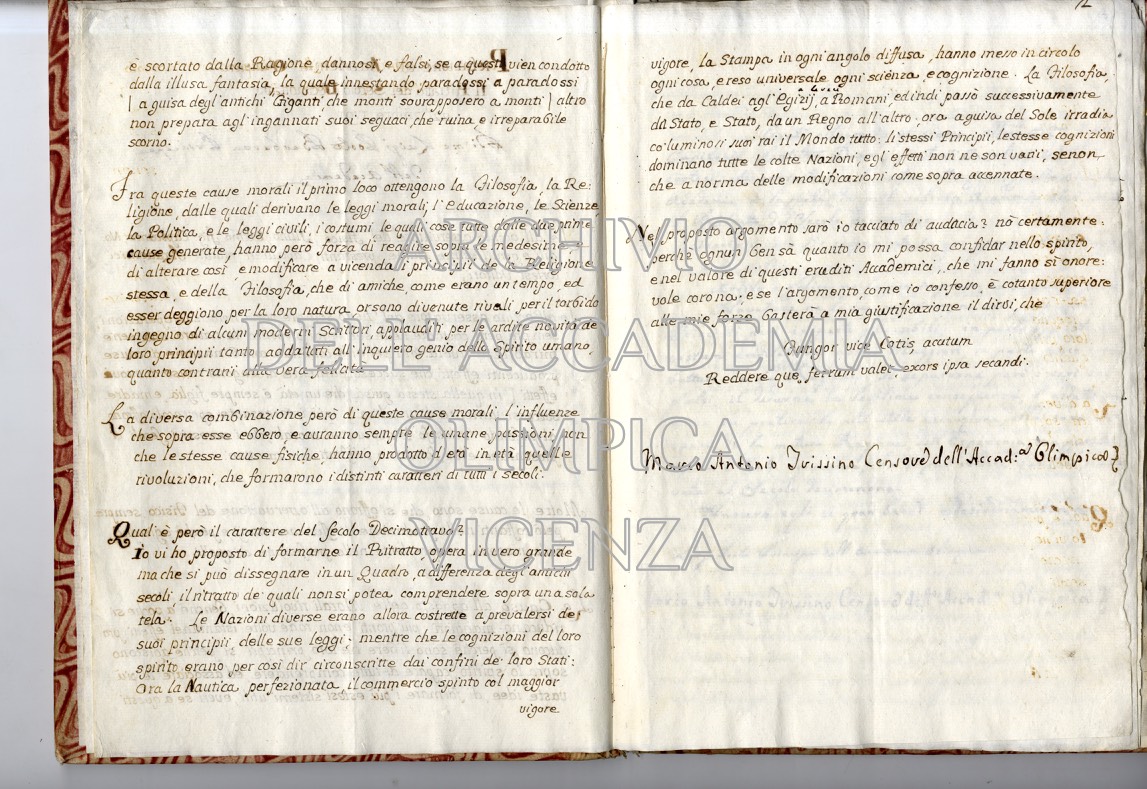 è scortato dalla Ragione, dannosi, e falsi, se a questi vien condotto
dalla illusa fantasia, la quale innestando paradossi a paradossi
| a guisa degl'antichi Giganti, che monti sovrapposero a monti | altro
non prepara agl'ingannati suoi seguaci, che ruina, e irreparabile
scorno.
Fra queste cause morali il primo loco ottengono la Filosofia, la Re:
ligione, dalle quali derivano le leggi morali, l'educazione, le Scienze,
la Politica, e le leggi civili, i costumi, le quali cose tutte dalle due prime
cause generate, hanno però forza di reagire sopra le medesime, e
di alterare così, e modificare a vicenda li principii de la Religione
stessa, e della Filosofia, che di amiche, come erano un tempo, ed
esser deggiono per la loro natura, or sono divenute rivali per il torbido
ingegno di alcuni moderni Scrittori, applauditi per le ardite novità de
loro principii tanto addattati all'inquieto genio dello Spirito umano,
quanto contrarii alla vera felicità
La diversa combinazione però di queste cause morali l'influenze
che sopra esse ebbero, e auranno sempre le umane passioni, non
che le stesse cause fisiche hanno prodotto d'età in età quelle
rivoluzioni, che formarono i distinti caratteri di tutti i secoli.
Qual è però il carattere del Secolo Decimottavo?
Io vi ho proposto di formarne il Ritratto, opera in vero grande
ma che si può dissegnare in un Quadro, a differenza degl'antichi
secoli il ritratto de' quali non si potea comprendere sopra una sola
tela. Le Nazioni diverse erano allora costrette a prevalersi de'
suoi principii, delle sue leggi; mentre che le cognizioni del loro
spirito erano per così dir circonscritte dai confini de' loro Stati:
Ora la Nautica perfezionata, il commercio spinto col maggior
vigore
12
vigore, la Stampa in ogni angolo diffusa, hanno messo in circolo
ogni cosa, e reso universale ogni scienza, e cognizione. La Filosofia,
che da Caldei agl'Egizij, a Romani, ed indi passò successivamente
di Stato, e Stato, da un Regno all'altro, ora a guisa del Sole irradia
co' luminosi suoi rai il Mondo tutto: li stessi Principii, le stesse cognizioni
dominano tutte le colte Nazioni, e gl'effetti non ne son varii, senon,
che a norma delle modificazioni come sopra accennate.
Nel proposto argomento sarò io tacciato di audacia? nò certamente:
perchè ognun ben sà quanto io mi possa confidar nello spirito,
e nel valore di questi eruditi Accademici, che mi fanno sì onore:
vole corona: e se l'argomento, come io confesso, è cotanto superiore
alle mie forze, basterà a mia giustificazione il dirvi, che
Fungor vice Cotis, acutum
Reddere que, ferrum valet, exors ipsa secandi.
Marco Antonio Trissino Censore dell'Accad:a Olimpica
ARCHIVIO
DELL'ACCADEMIA
OLIMPICA
VICENZA